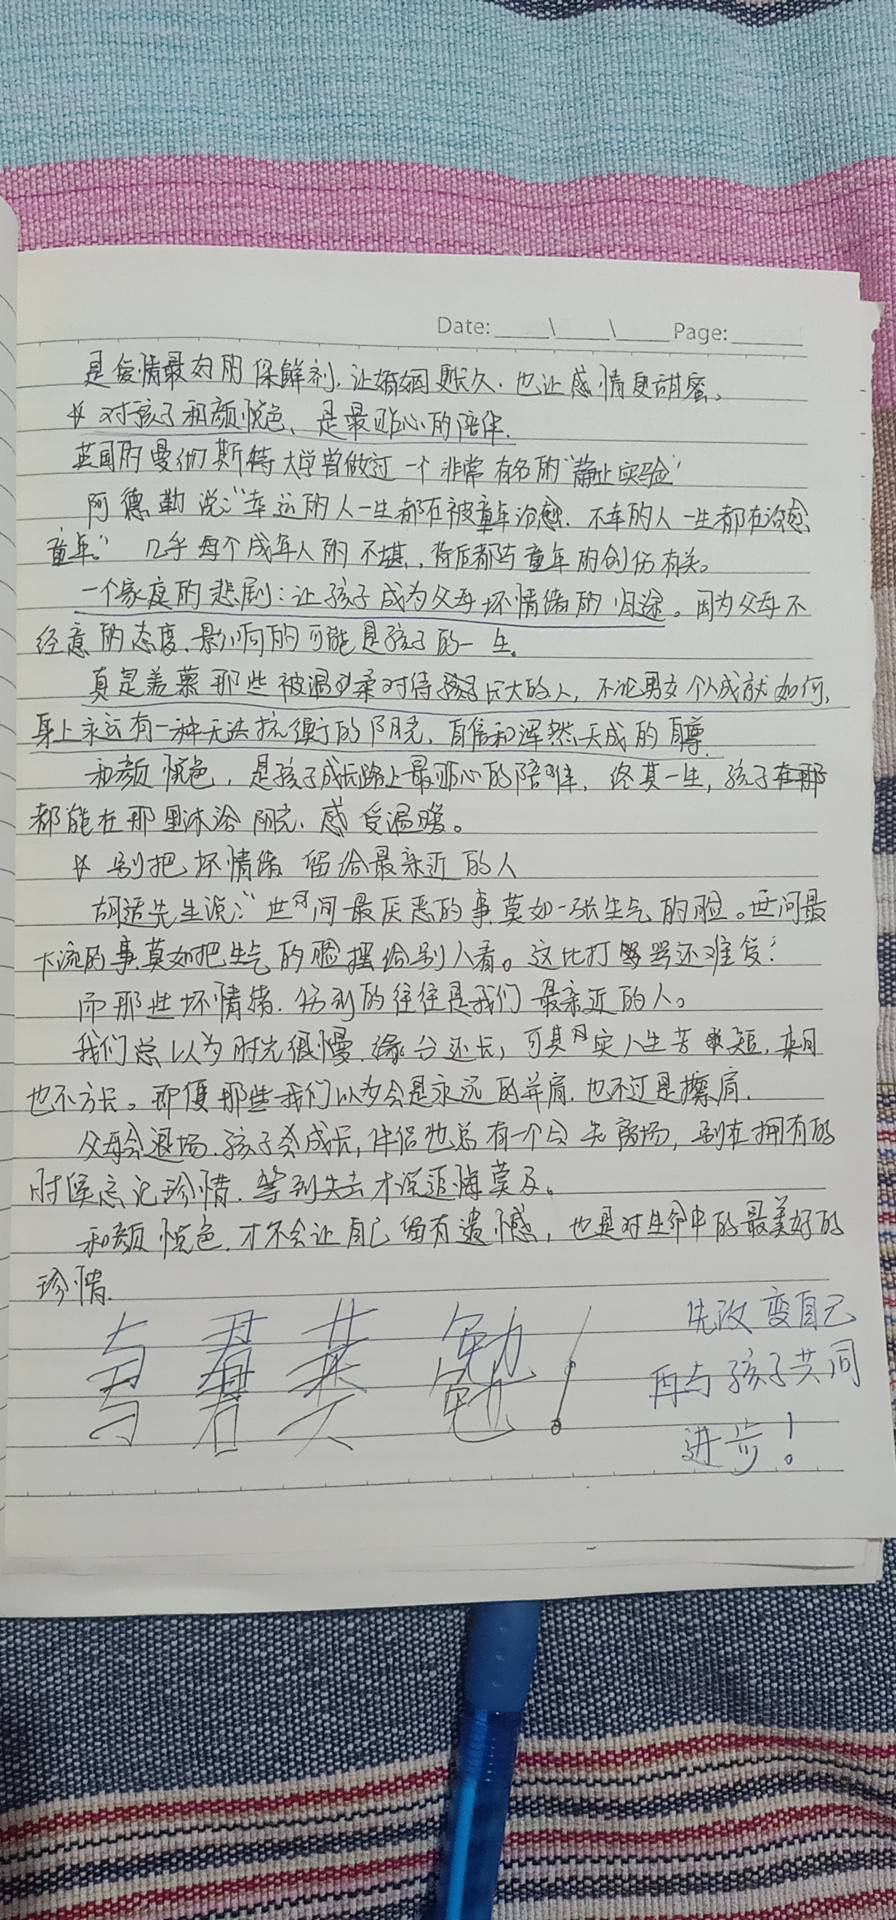 Date: ____\____\____ Page: ____
是爱情最好的保鲜剂,让婚姻更长久.也让感情更甜蜜。
☆ 对孩子和颜悦色、是最贴心的陪伴.
英国的曼彻斯特大学曾做过一个非常有名的“静止实验”
阿德勒说:“幸运的人一生都在被童年治愈.不幸的人一生都在治愈
童年.” 几乎每个成年人的不堪,背后都与童年的创伤有关。
一个家庭的悲剧:让孩子成为父母坏情绪的归途。因为父母不
经意的态度.影响的可能是孩子的一生.
真是羡慕那些被温柔对待长大的人,不论男女个人成就如何,
身上永远有一种无法抗衡的阳光、自信和浑然天成的自尊.
和颜悦色,是孩子成长路上最贴心的陪伴.终其一生,孩子
都能在那里沐浴阳光.感受温暖。
☆ 别把坏情绪留给最亲近的人
胡适先生说:“世间最厌恶的事莫如一张生气的脸。世间最
下流的事莫如把生气的脸摆给别人看。这比打骂还难受.”
而那些坏情绪.伤到的往往是我们最亲近的人。
我们总以为时光很慢.缘分还长,可其实人生苦短.来日
也不方长。即便那些我们以为会是永远的并肩.也不过是擦肩.
父母会退场.孩子会成长,伴侣也总有一个会先离场,别在拥有的
时候忘记珍惜.等到失去才说追悔莫及。
和颜悦色.才不会让自己留有遗憾,也是对生命中的最美好的
珍惜.
与君共勉!
与君共勉
先改变自己
再与孩子共同
进步!